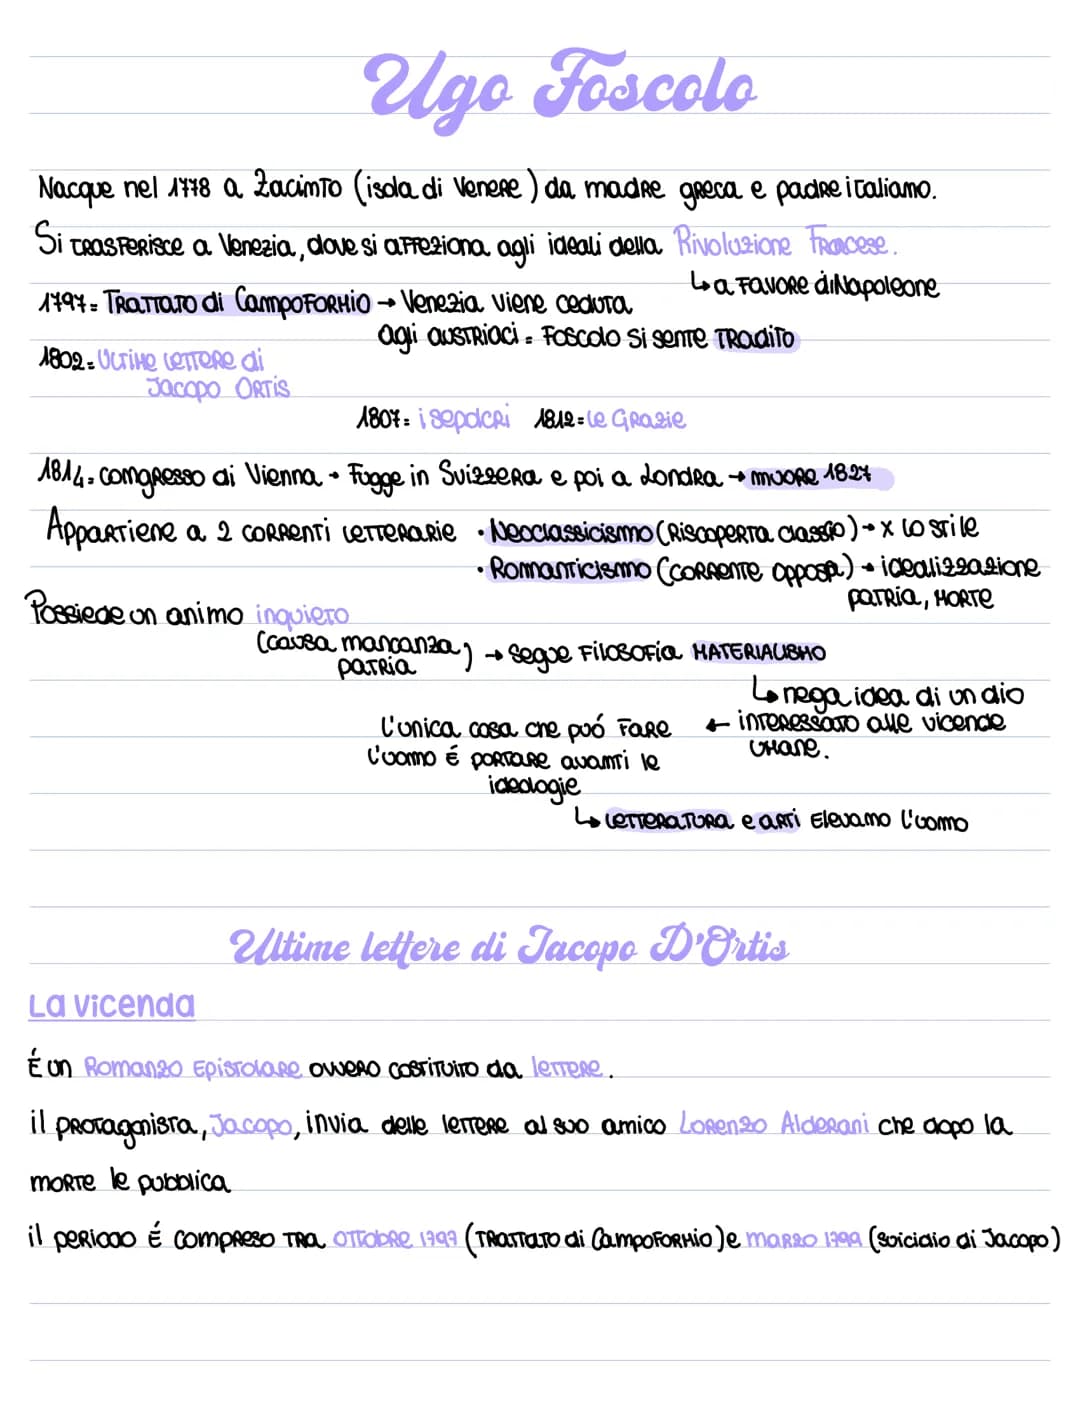 Ugo Foscolo
Nacque nel 1778 a Zacinto (isola di Venere) da madre greca e padre italiano.
Si trasferisce a Venezia, dove si affeziona agli ideali della Rivoluzione Francese.
↳ a favore di Napoleone
1797= Trattato di Campoformio → Venezia viene ceduta
agli austriaci = Foscolo si sente tradito
1802= Ultime lettere di
Jacopo Ortis
1807= i sepolcri 1812= le Grazie
1814= congresso di Vienna → Fugge in Svizzera e poi a Londra → muore 1827
Appartiene a 2 correnti letterarie • Neoclassicismo (riscoperta classico) → x lo stile
• Romanticismo (corrente opposta) → idealizzazione
patria, morte
Possiede un animo inquieto
(causa mancanza patria) → segue filosofia MATERIALISMO
↳ nega idea di un dio
interessato alle vicende
umane.
← L'unica cosa che puó fare
l'uomo é portare avanti le
ideologie
↳ letteratura e arti elevano l'uomo
Ultime lettere di Jacopo D'Ortis
La vicenda
É un Romanzo Epistolare ovvero costituito da lettere.
il protagonista, Jacopo, invia delle lettere al suo amico Lorenzo Alderani che dopo la
morte le pubblica
il periodo é compreso tra ottobre 1797 (trattato di Campoformio) e marzo 1799 (suicidio di Jacopo)